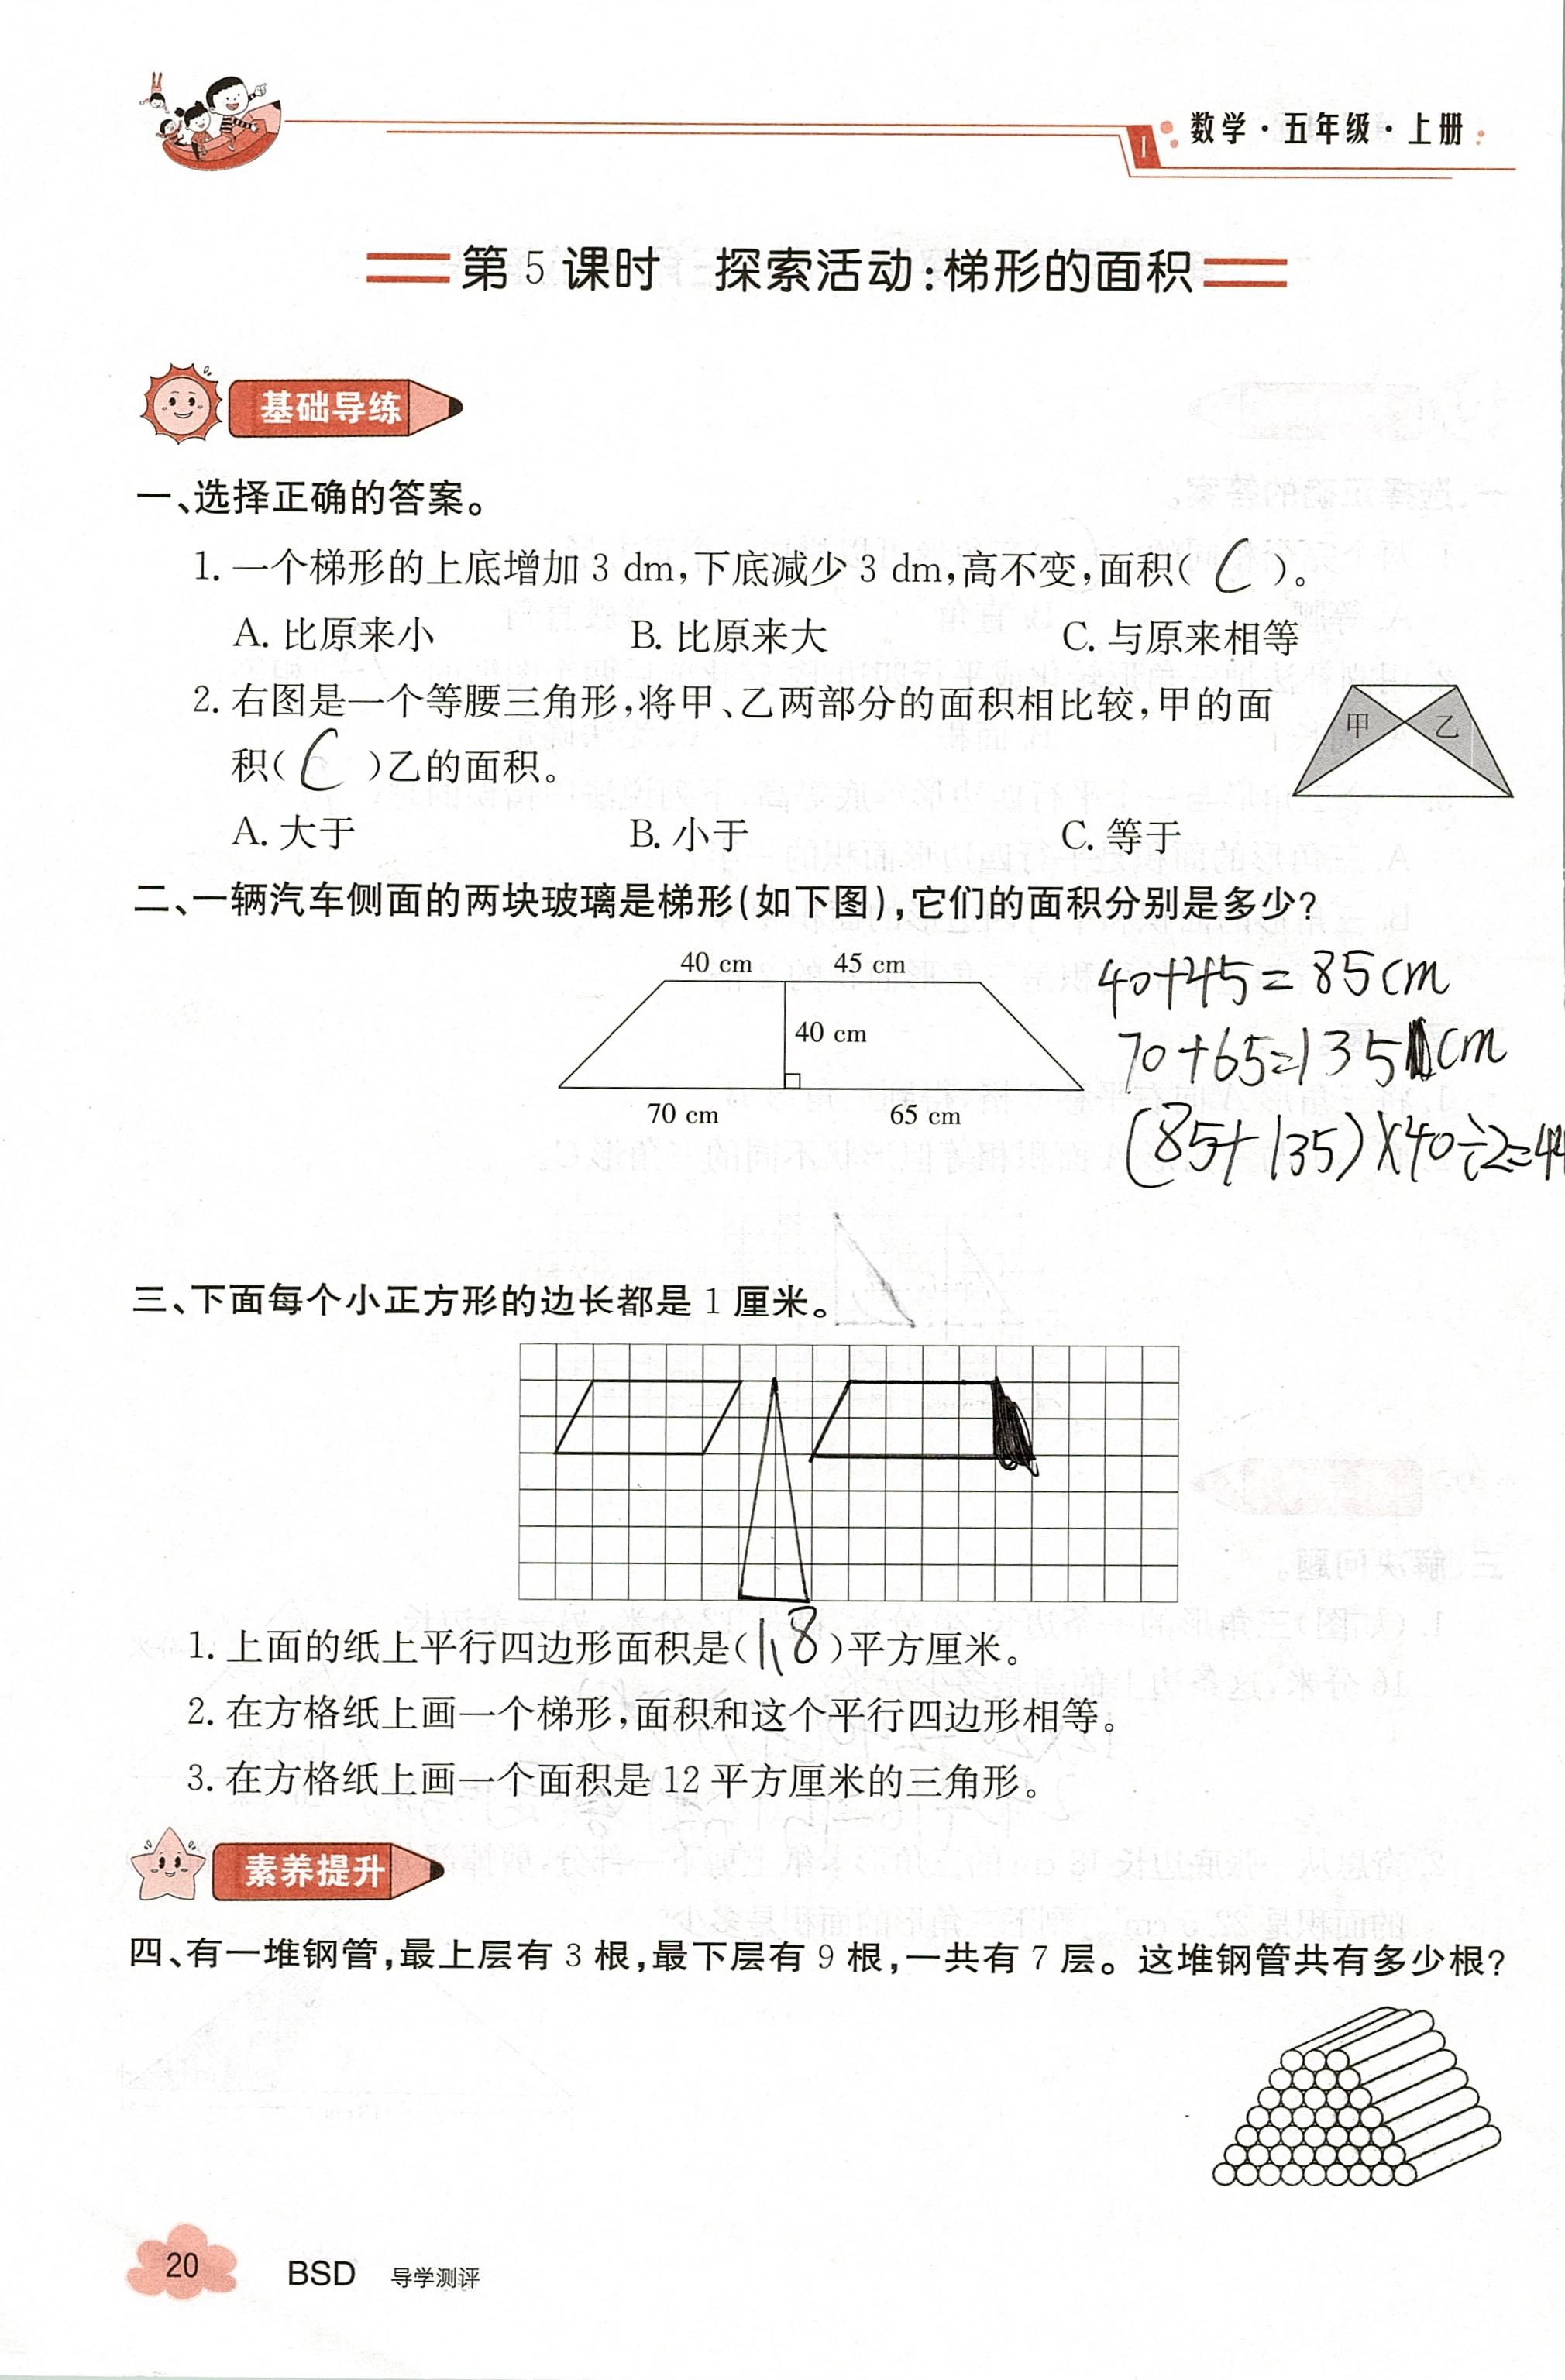 数学·五年级·上册
第5课时 探索活动:梯形的面积
基础导练
一、选择正确的答案。
1. 一个梯形的上底增加 3 dm,下底减少 3 dm,高不变,面积( C )。
A. 比原来小 B. 比原来大 C. 与原来相等
2. 右图是一个等腰三角形,将甲、乙两部分的面积相比较,甲的面
积( C )乙的面积。
甲 乙
A. 大于 B. 小于 C. 等于
二、一辆汽车侧面的两块玻璃是梯形(如下图),它们的面积分别是多少?
40 cm 45 cm
40 cm
70 cm 65 cm
40+45=85cm
70+65=135cm
(85+135)×40÷2=44
三、下面每个小正方形的边长都是 1 厘米。
1. 上面的纸上平行四边形面积是( 8 )平方厘米。
2. 在方格纸上画一个梯形,面积和这个平行四边形相等。
3. 在方格纸上画一个面积是 12 平方厘米的三角形。
素养提升
四、有一堆钢管,最上层有 3 根,最下层有 9 根,一共有 7 层。这堆钢管共有多少根?
20 BSD 导学测评